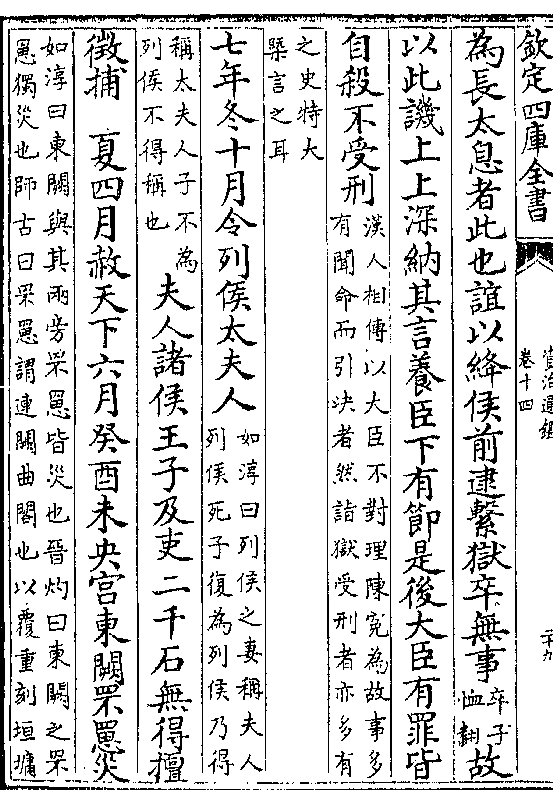 欽定四庫全書
資治通鑑
卷十四
二十九
為長太息者此也誼以絳侯前逮繫獄卒無事卒子恤翻故
以此譏上上深納其言養臣下有節是後大臣有罪皆
自殺不受刑漢人相傳以大臣不對理陳冤為故事多有聞命而引决者然詣獄受刑者亦多有
之史特大槩言之耳
七年冬十月令列侯太夫人如淳曰列侯之妻稱夫人列侯死子復為列侯乃得
稱太夫人子不為列侯不得稱也夫人諸侯王子及吏二千石無得擅
徵捕 夏四月赦天下六月癸酉未央宫東闕罘罳災
如淳曰東闕與其兩旁罘罳皆災也晉灼曰東闕之罘罳獨災也師古曰罘罳謂連闕曲閣也以覆重刻垣墉